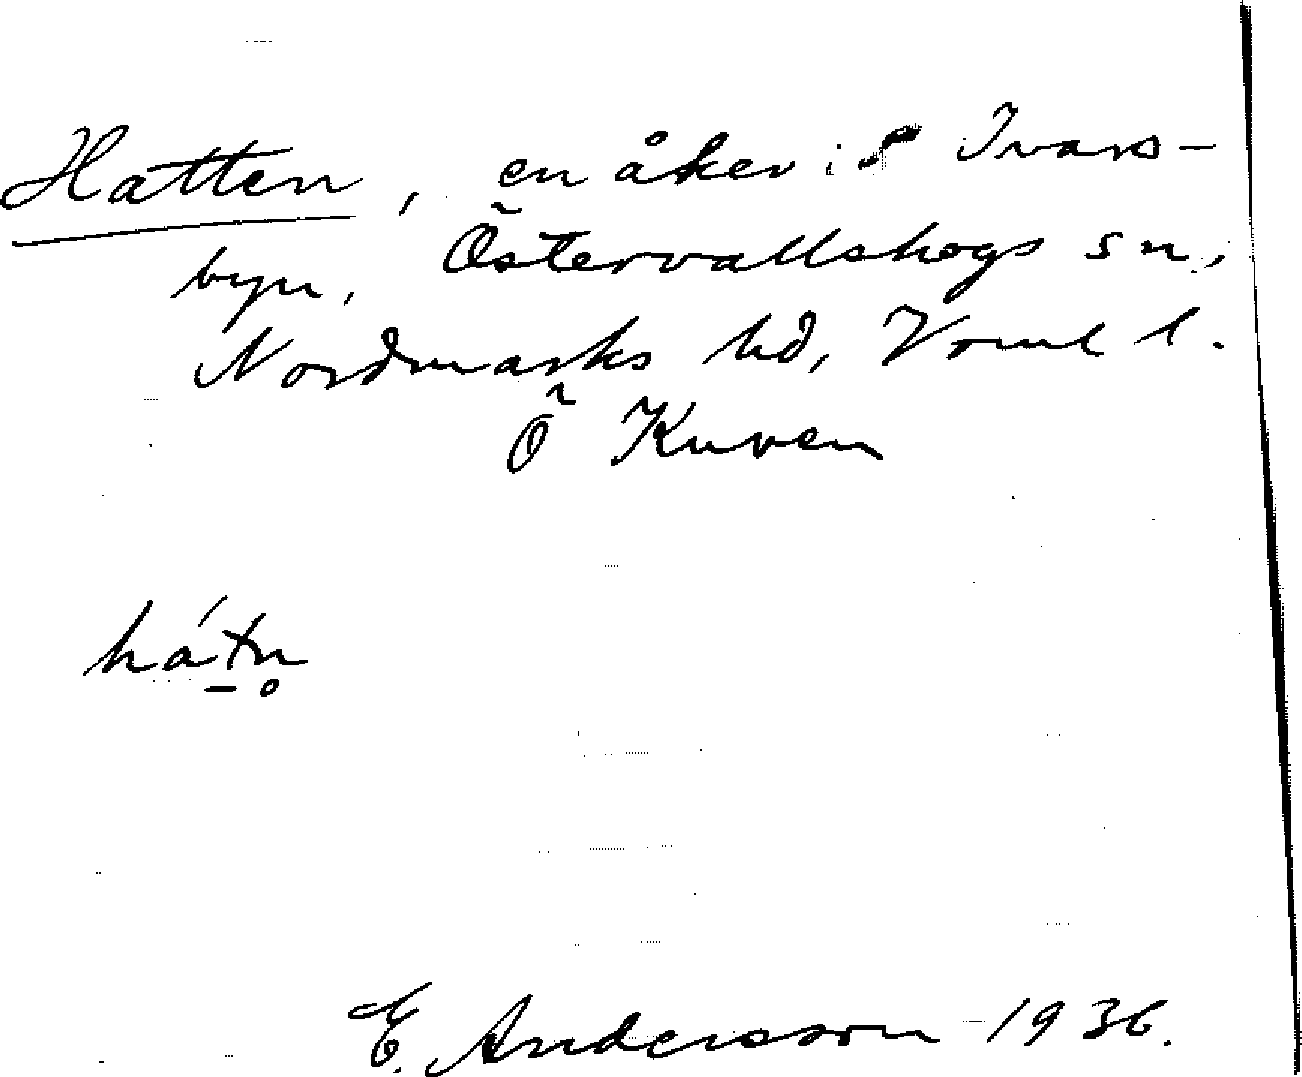 Hatten, en åker i Ivars-
byn, Östervallskogs sn,
Nordmarks hd, Verml l.
Ö Kuven
hátn̥
E. Andersson 1936.